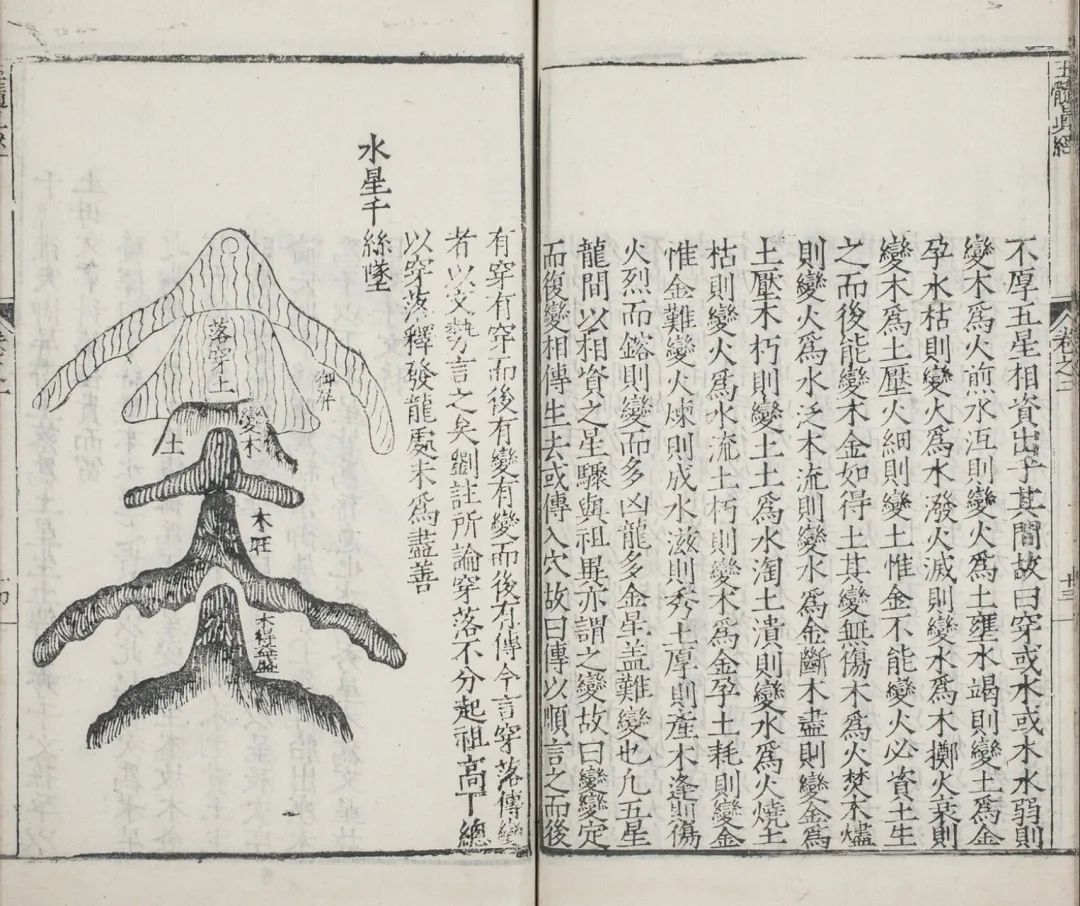 玉髓真經
卷之一
不厚五星相資出于其間故曰穿或水或木水弱則
變木爲火煎水沍則變火爲土壅水竭則變土爲金
孕水枯則變火爲水潑火滅則變水爲木擲火衰則
變木爲土壓火細則變土惟金不能變火必資土生
之而後能變木金如得土其變無傷木爲火焚木燼
則變火爲水泛木流則變水爲金斷木盡則變金爲
土壓木朽則變土土爲水淘土潰則變水爲火燒土
枯則變火爲水流土朽則變木爲金孕土耗則變金
惟金難變火煉則成水滋則秀土厚則產木逢則傷
火烈而鎔則變而多凶龍多金星盖難變也凡五星
龍間以相資之星驟與祖異亦謂之變故曰變變定
而復變相傳生去或傳入穴故曰傳以順言之而後
有穿有穿而後有變有變而後有傳今言穿落傳變
者以文勢言之矣劉註所論穿落不分起祖高下總
以穿落釋發龍處未爲盡善
水星千絲墜
落穿土
御屏
變木
土
木旺